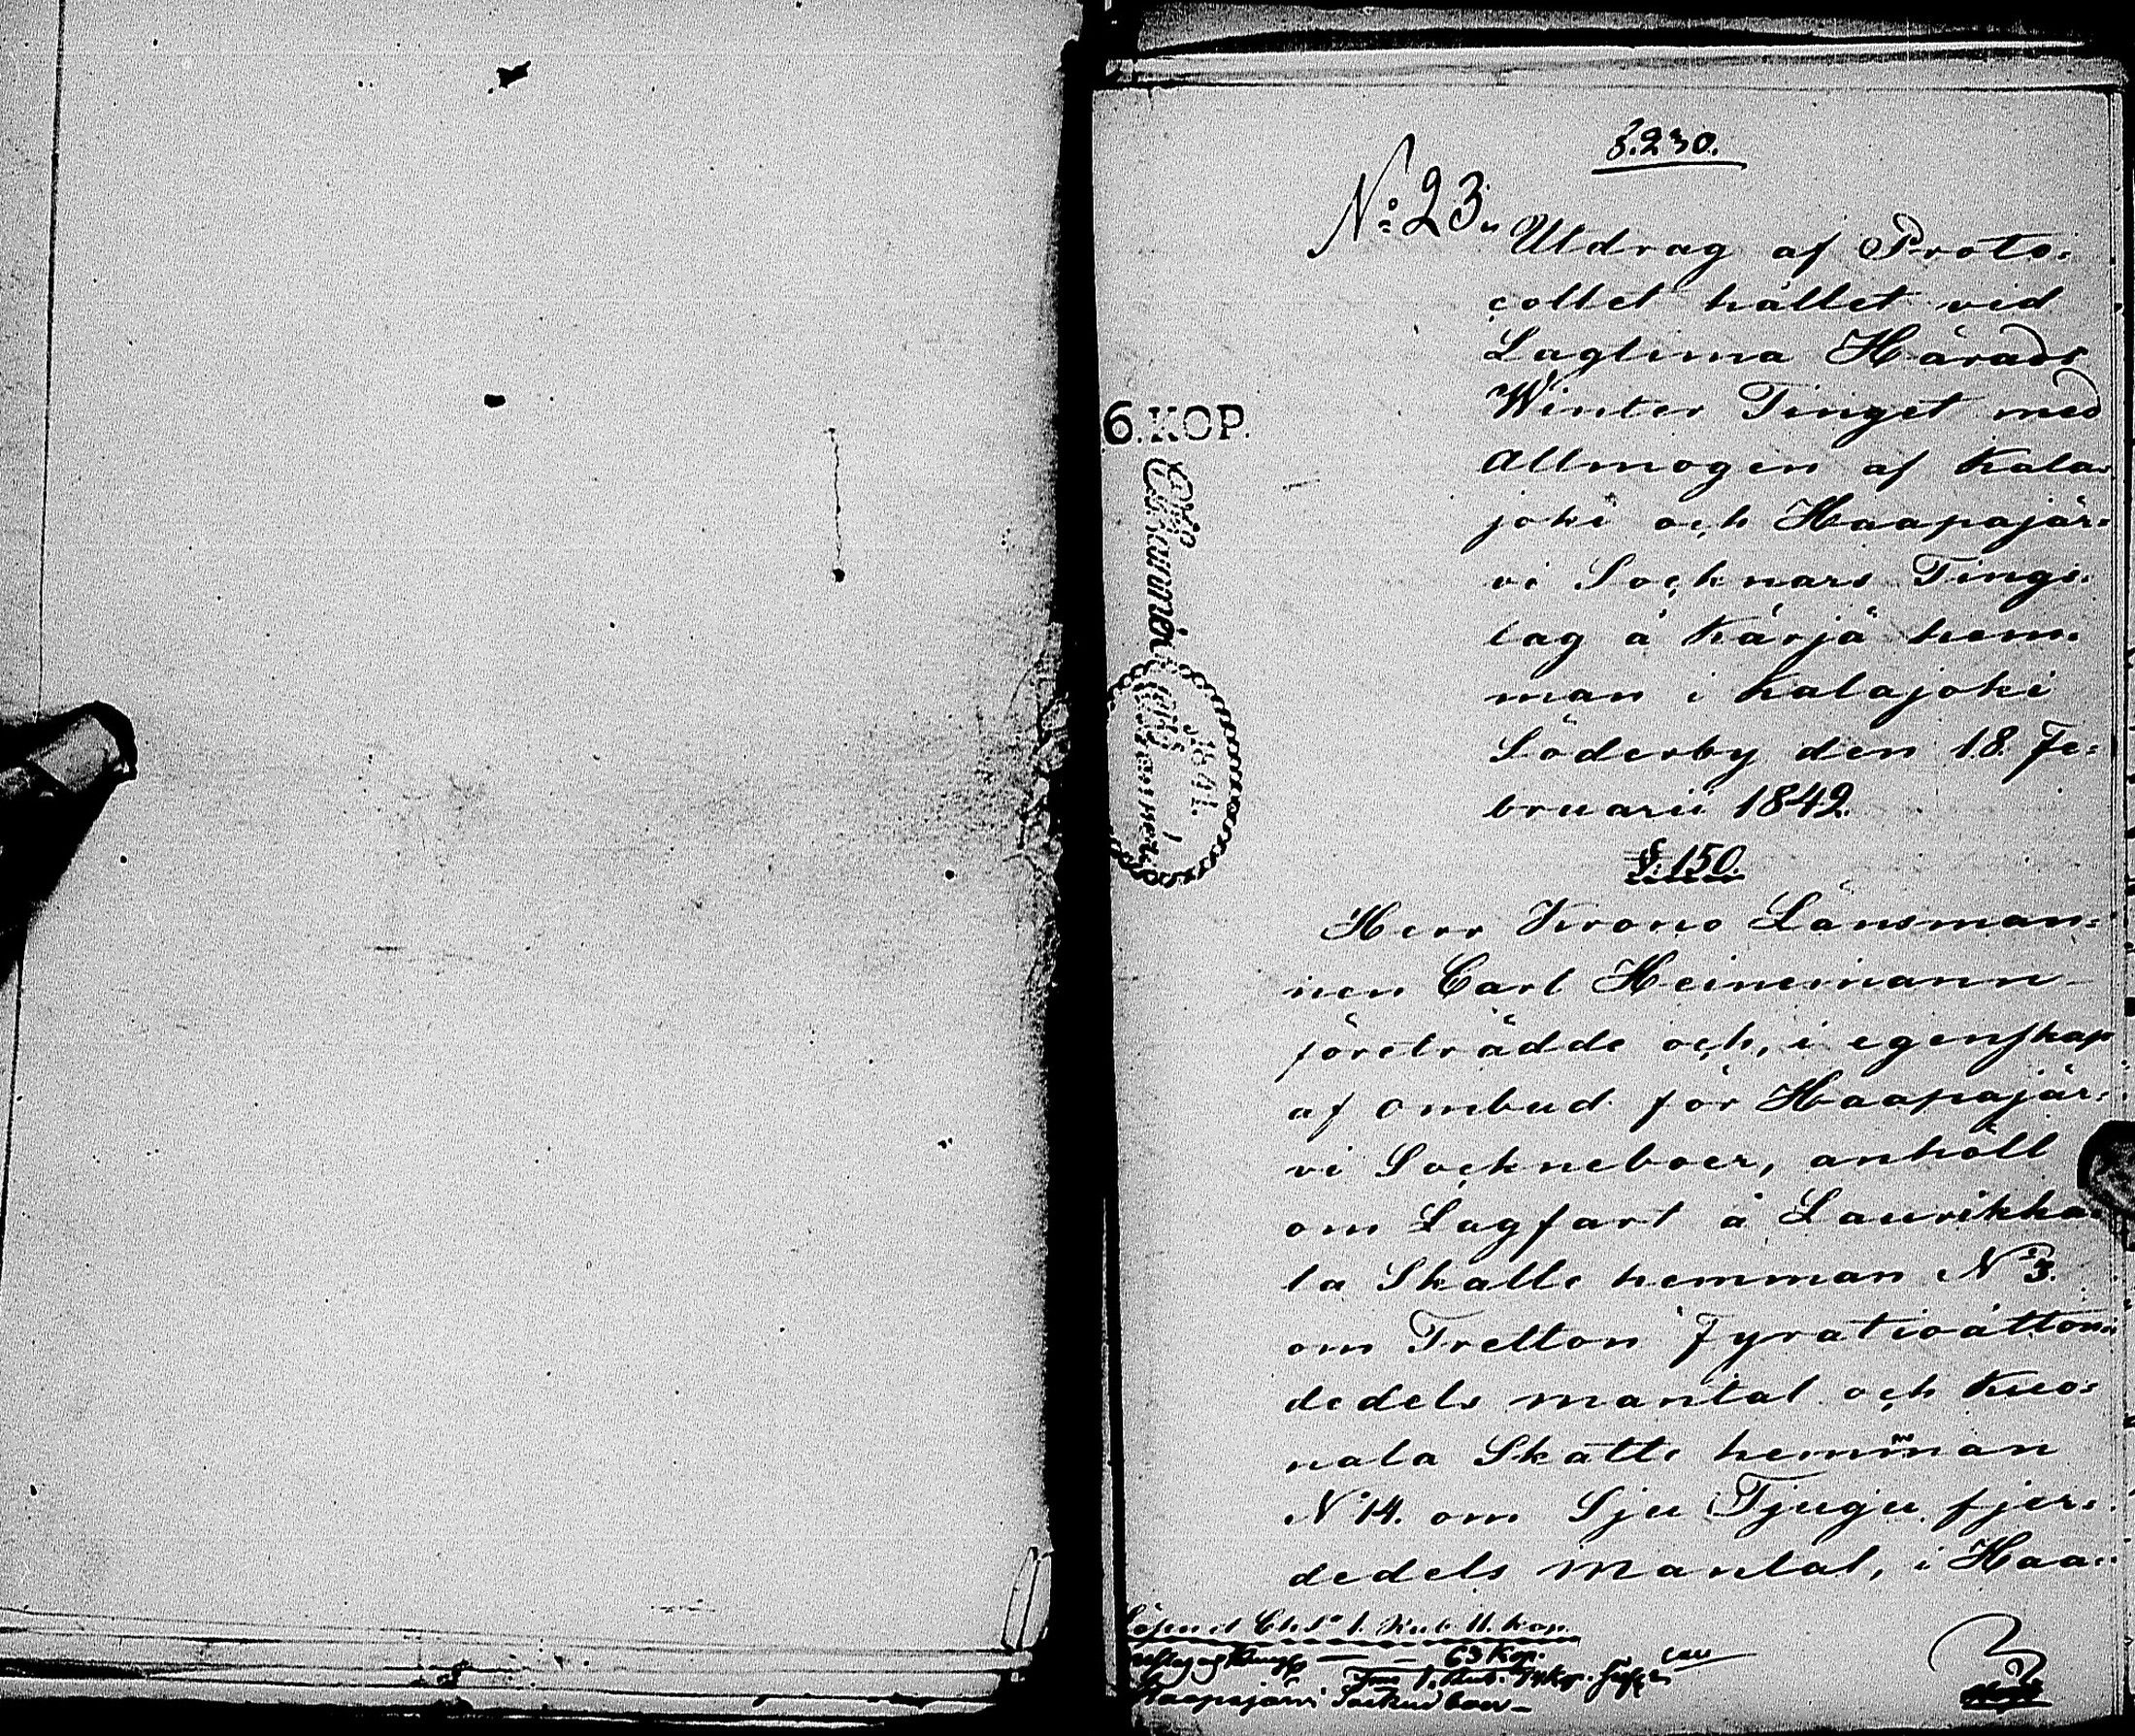 §.230.
No 23.
Utdrag af Proto:
collet hållet vid
Lagtima Härads
Winter Tinget med
Allmogen af Kala:
joki och Haapajär:
vi Socknars Tings:
lag å Kärjä hem:
man i Kalajoki
Söderby den 18. Fe:
bruarii 1842.
6.KOP.
1841.
§.150.
Herr Krono Länsman:
nen Carl Heinemann
företrädde och, i egenskap
af ombud för Haapajär:
vi Sockneboer, anhöll
om Lagfart å Laurikka:
la Skatte hemman No 3.
om Tretton Fyratioåtton:
dedels mantal och Kuo:
nala Skatte hemman
No 14. om Sju Tjugu fjer:
dedels mantal, i Haa:
1. Rub. 11. kop.
63 Kop.
Haapajärvi Socknboer